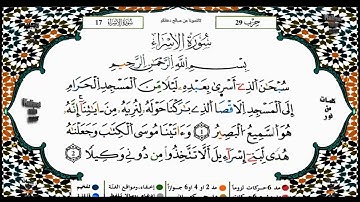 سُورَةُ الإِسْرَاء 17
حزب 29
سُورَةُ الْإِسْرَاءِ
بِسْمِ اللَّهِ الرَّحْمَنِ الرَّحِيمِ
سُبْحَٰنَ ٱلذِےٓ أَسْر۪ىٰ بِعَبْدِهِۦ لَيْلاٗ مِّنَ ٱلْمَسْجِدِ ٱلْحَرَامِ
إِلَى ٱلْمَسْجِدِ ٱلَاقْصَا ٱلذِے بَٰرَكْنَا حَوْلَهُۥ لِنُرِيَهُۥ مِنَ ايَٰتِنَآ إِنَّهُۥ
هُوَ ٱلسَّمِيعُ ٱلْبَصِيرُ 1 وَءَاتَيْنَا مُوسَى ٱلْكِتَٰبَ وَجَعَلْنَٰهُ
هُدىٗ لِّبَنِےٓ إِسْرَآءِيلَ أَلَّا تَتَّخِذُواْ مِن دُونِے وَكِيلاٗ 2
كلمات
من
نور